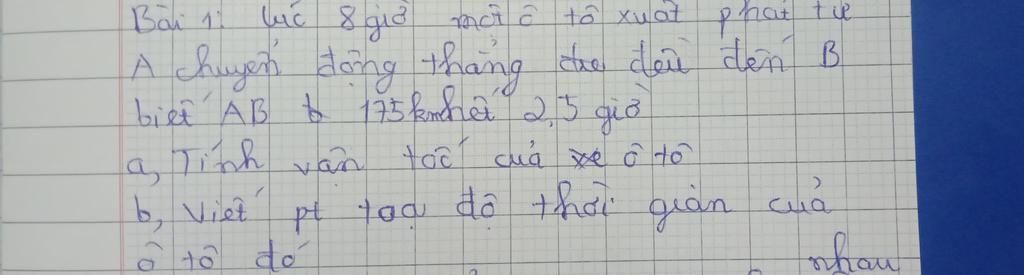 Bài 1: lúc 8 giờ một ô tô xuất phát từ
A chuyển động thẳng đều đến B
biết AB 175km hết 2,5 giờ
a, Tính vận tốc của ô tô
b, Viết pt toạ độ thời gian của
ô tô đó nhau